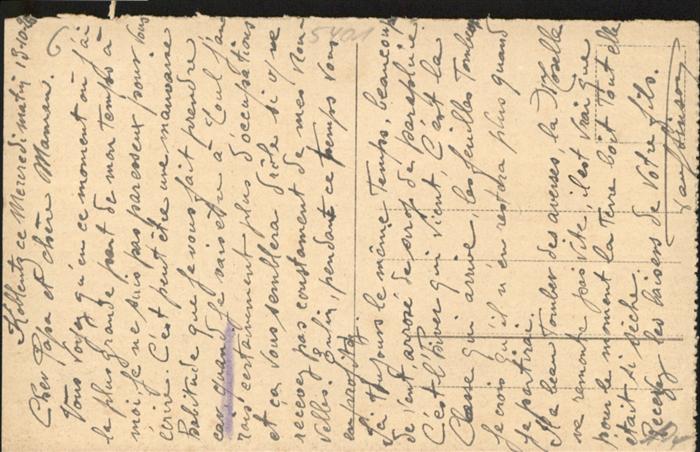 Koblentz ce Mercredi matin 19-10-
Cher Papa et chère Maman.
Vous voyez qu'en ce moment où j'ai
la plus grande part de mon temps à
moi, je ne suis pas paresseux pour vous
écrire. C'est peut être une mauvaise
habitude que je vous fait prendre
car quand je serai à Toul j'au
rais certainement plus d'occupations
et ça vous semblera drôle si vous ne
recevez pas constament de mes nou-
velles. Enfin, pendant ce temps vous
en profitez.
Ici toujours le même temps, beaucoup
de vent arrosé de sirop de parapluie.
C'est l'hiver qui vient, C'est la
Classe qui arrive, les feuilles tombent
je crois qu'il n'en restera plus quand
je partirai.
Il a beau tomber des averses, la Moselle
ne remonte pas vite, il est vrai que
pour le moment la terre boit tout elle
était si sèche.
Recevez les baisers de votre fils.
5401